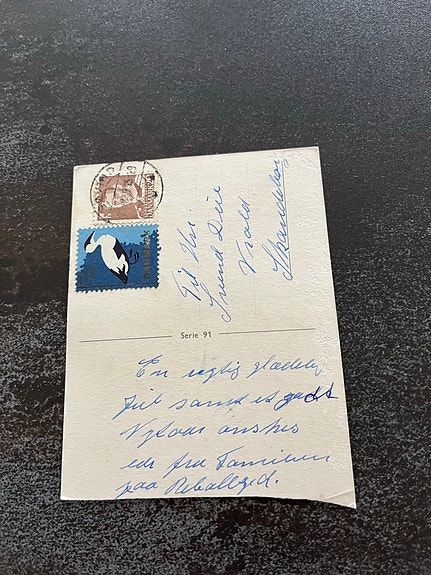 Til Hr.
Svend Due
Vrold
Skanderborg
Serie 91
En rigtig glædelig
Jul samt et godt
Nytaar ønskes
eder fra Familien
paa